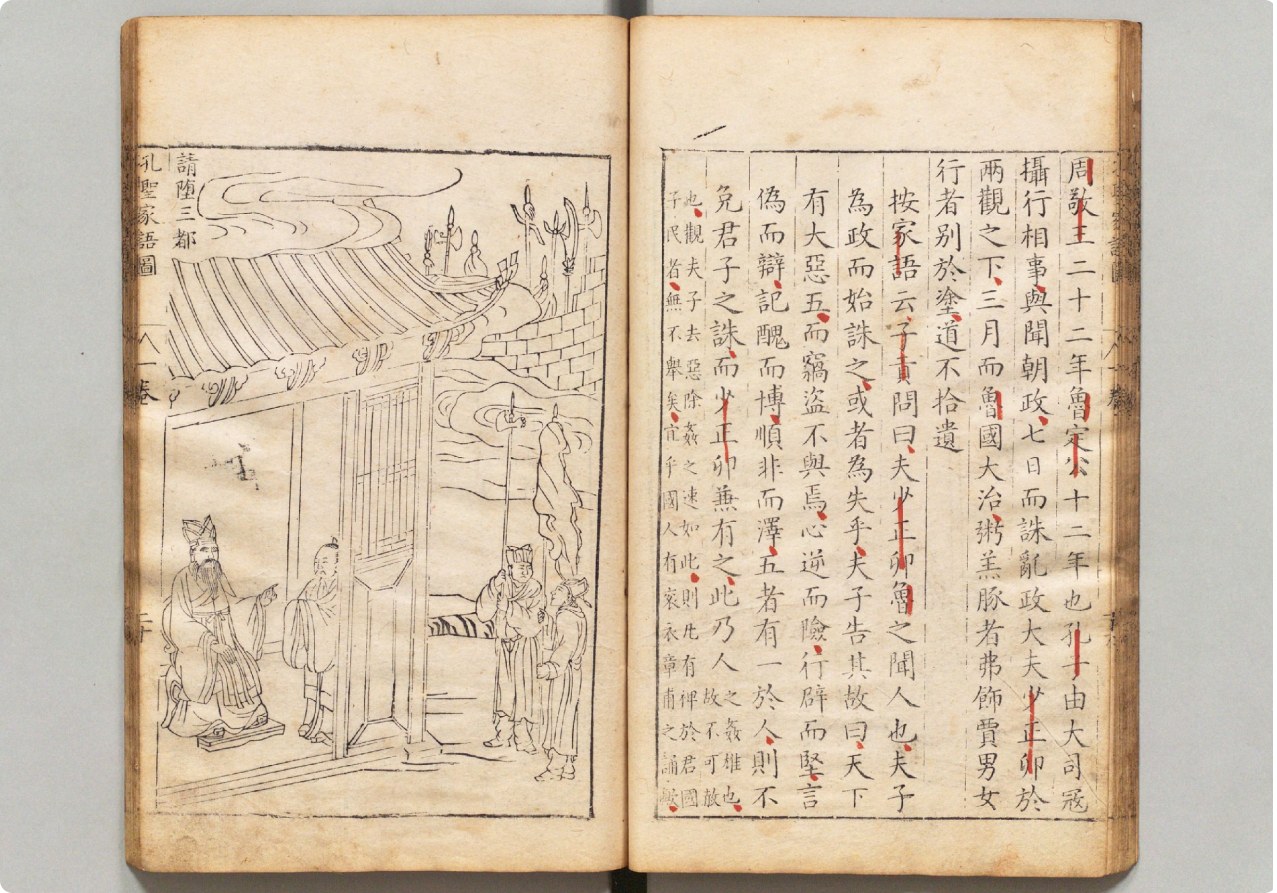 周敬王二十二年魯定公十二年也孔子由大司冦
攝行相事與聞朝政七日而誅亂政大夫少正卯於
兩觀之下三月而魯國大治粥羔豚者弗飾賈男女
行者別於塗道不拾遺
按家語云子責問曰夫少正卯魯之聞人也夫子
為政而始誅之或者為失乎夫子告其故曰天下
有大惡五而竊盜不與焉心逆而險行辟而堅言
偽而辯記醜而博順非而澤五者有一於人則不
免君子之誅而少正卯兼有之此乃人
之姦雄也
故不可赦
也觀夫子去惡除姦之速如此則凡有裨於君國
子民者無不舉矣宜乎國人有衮衣章甫之誦歟
請墮三都
孔聖家語圖
卷一